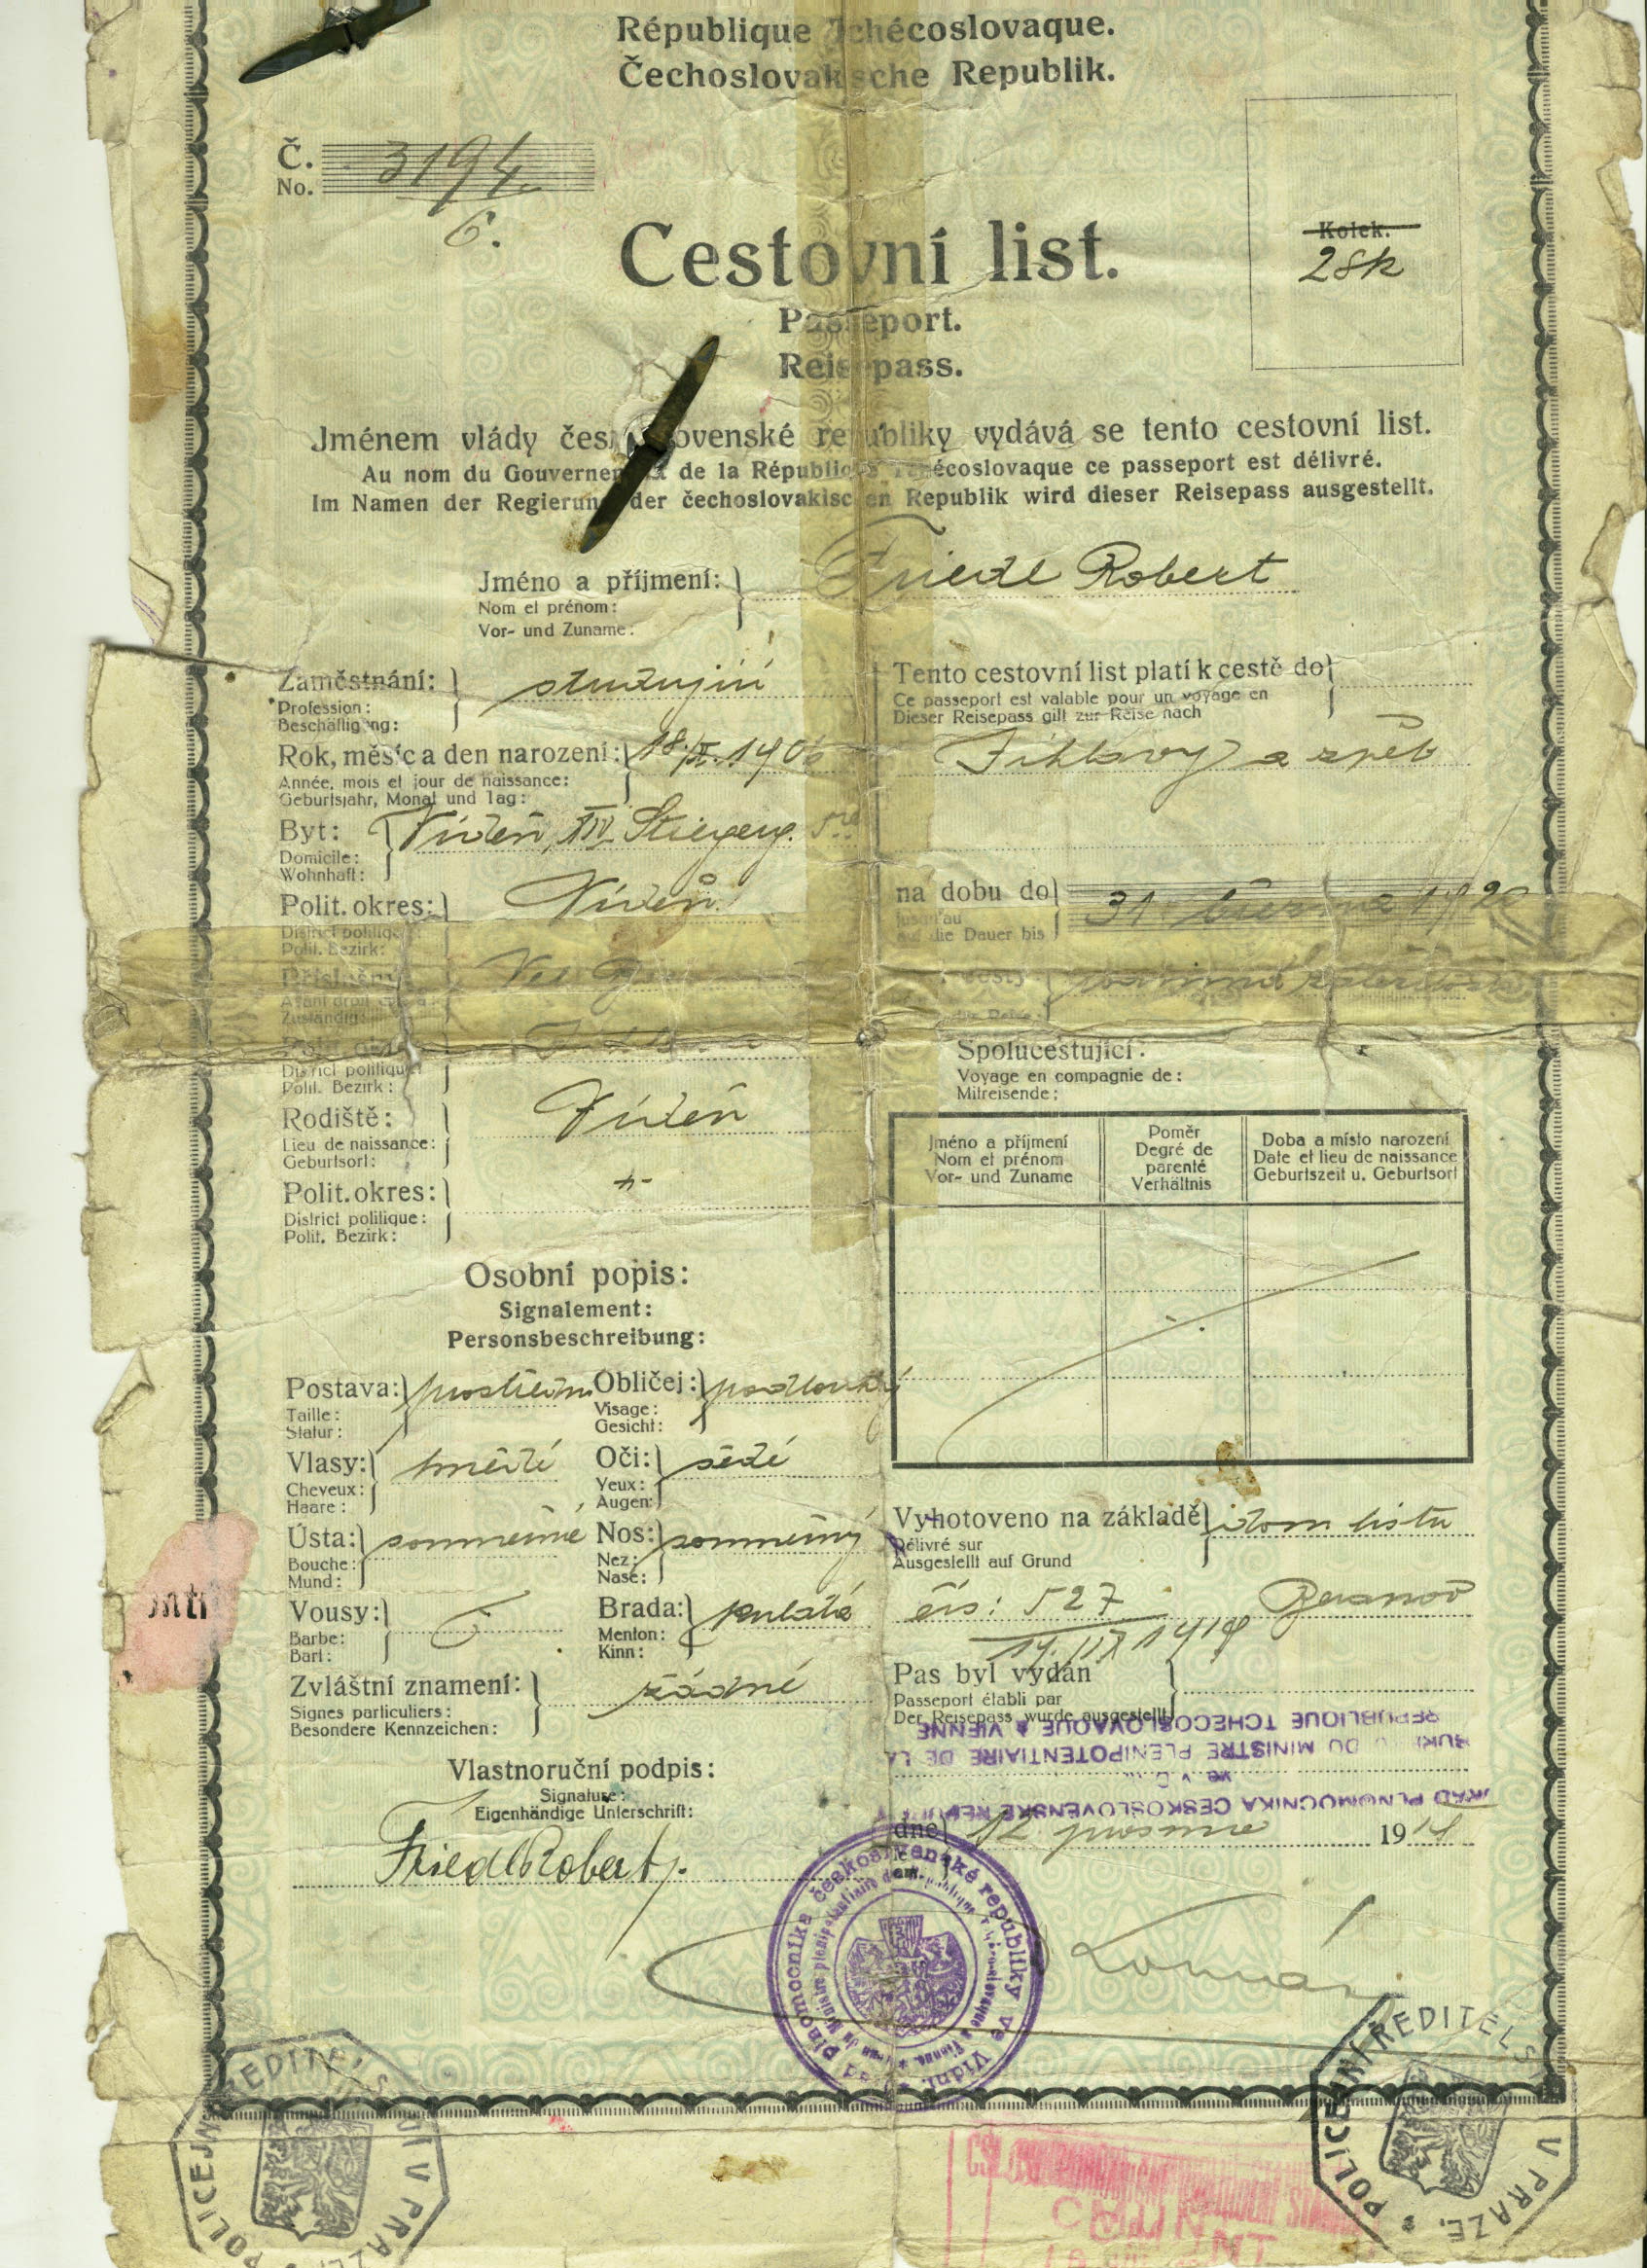 République Tchécoslovaque.
Čechoslovakische Republik.
Č.
No.
3194
6.
Kolek.
2SK
Cestovní list.
Passeport.
Reisepass.
Jménem vlády česko ovenské republiky vydává se tento cestovní list.
Au nom du Gouvernement de la République Tchécoslovaque ce passeport est délivré.
Im Namen der Regierung der čechoslovakischen Republik wird dieser Reisepass ausgestellt.
Jméno a příjmení:
Friedl Robert
Nom et prénom:
Vor- und Zuname:
Zaměstnání:
studující
Profession:
Beschäftigung:
Rok, měsíc a den narození:
Année, mois et jour de naissance:
Geburtsjahr, Monat und Tag:
Byt:
Vídeň, XIV
Domicile:
Wohnhaft:
Polit. okres:
Vídeň
District politique:
Polit. Bezirk:
Příslušný
Zuständig:
Polit. okres
District politique
Polit. Bezirk:
Rodiště:
Vídeň
Lieu de naissance:
Geburtsort:
Polit. okres:
District politique:
Polit. Bezirk:
Osobní popis:
Signalement:
Personsbeschreibung:
Postava:
prostřední
Obličej:
podlouhlý
Taille:
Statur:
Visage:
Gesicht:
Vlasy:
hnědé
Oči:
šedé
Cheveux:
Haare:
Yeux:
Augen:
Ústa:
souměrné
Nos:
souměrný
Bouche:
Mund:
Nez:
Nase:
Vousy:
Brada:
kulatá
Barbe:
Bart:
Menton:
Kinn:
Zvláštní znamení:
žádné
Signes particuliers:
Besondere Kennzeichen:
Vlastnoruční podpis:
Signature:
Eigenhändige Unterschrift:
Friedl Robert
Tento cestovní list platí k cestě do
Ce passeport est valable pour un voyage en
Dieser Reisepass gilt zur Reise nach
Jihlavy a zpět
na dobu do
31. března 1920
jusqu'au
auf die Dauer bis
cesty
Spolucestující:
Voyage en compagnie de:
Mitreisende:
Jméno a příjmení
Nom et prénom
Vor- und Zuname
Poměr
Degré de
parenté
Verhältnis
Doba a místo narození
Date et lieu de naissance
Geburtszeit u. Geburtsort
Vyhotoveno na základě
dom listu
Délivré sur
Ausgestellt auf Grund
čís: 527
Beranov
Pas byl vydán
Passeport établi par
Der Reisepass wurde ausgestellt
REPUBLIQUE TCHECOSLOVAQUE A VIENNE
DU MINISTRE PLENIPOTENTIAIRE DE LA
PLNOMOCNIKA CESKOSLOVENSKE REPUBLIKY
dne
12 prosince 19
plnomocníka československé republiky ve Vídni.
POLICEJNÍ ŘEDITELSTVÍ V PRAZE.
POLICEJNÍ ŘEDITELSTVÍ V PRAZE.